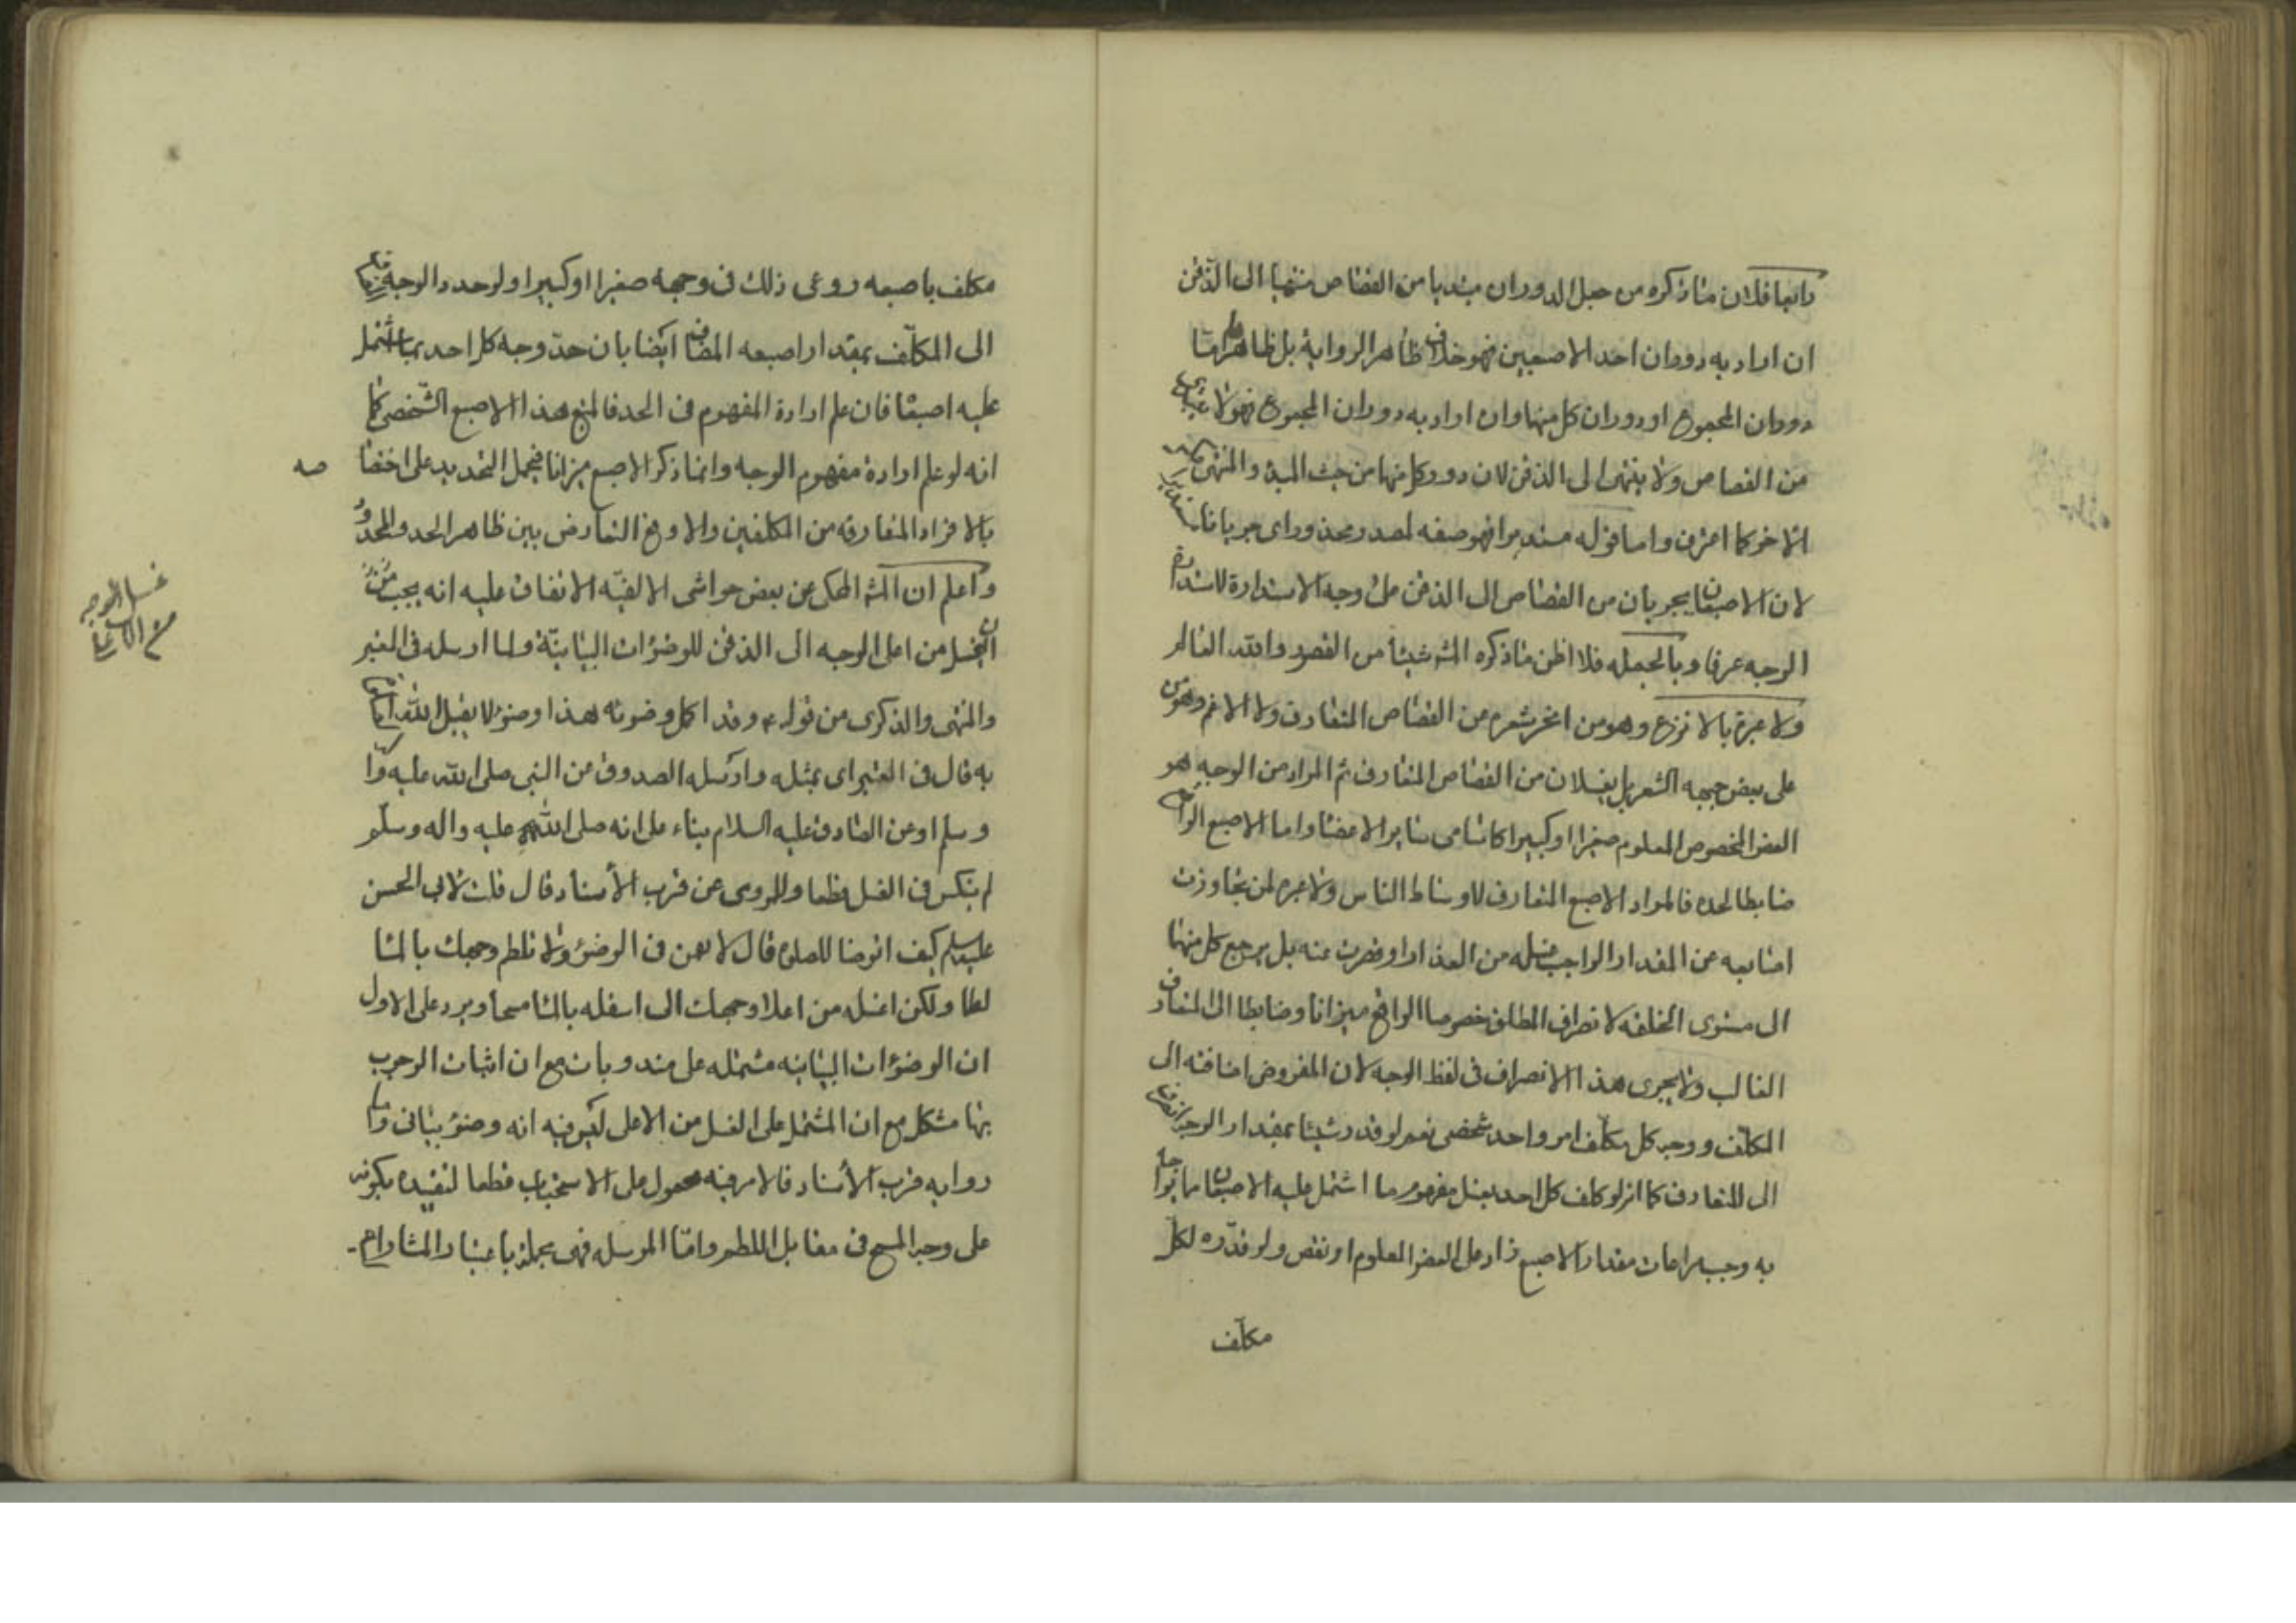 رابعا فلان ما ذكره من جعل الدوران مبتديا من القصاص منتهيا الى الذقن
ان اراد به دوران احد الاصبعين فهو خلاف ظاهر الرواية بل ظاهرها اما
دوران المجموع او دوران كل منهما وان اراد به دوران المجموع فهو لا يبتدى
من القصاص ولا ينتهى الى الذقن لان دور كل منهما من حيث المبدء والمنتهى
الاخر كما اعترف واما قوله مستديرا فهو صفه لمصدر محذوف اى جريانا مستديرا
لان الاصبعان يجريان من القصاص الى الذقن على وجه الاستدارة لاستدارة
الوجه عرفا وبالجمله فلا اظن ما ذكره الش شيئا من القصور والله العالم
ولا عبرة بالانزع وهو من انحسر شعره من القصاص المتعارف ولا الاغم وهو من
على بعض جبهه الشعر بل يغسلان من القصاص المتعارف ثم المراد من الوجه هو
العضو المخصوص المعلوم صغيرا او كبيرا كان كما فى ساير الاعضا واما الاصبع الواقع
ضابطا لحده فالمراد الاصبع المتعارف لاوساط الناس ولا عبره لمن تجاوزت
اصابعه عن المقدار الواجب غسله من العذار او قصرت عنه بل يرجع كل منهما
الى مستوى الخلقه لانصراف المطلق خصوصا الواقع ميزانا وضابطا الى المتعارف
الغالب ولا يجرى هذا الانصراف فى لفظ الوجه لان المفروض اضافته الى
المكلف ووجه كل مكلف امر واحد شخصى نعم لو قدر شيئا بمقدار الوجه انصرف
الى المتعارف كما انه لو كلف كل احد بغسل مفهوم ما اشتمل عليه الاصبعان مما يواجه
به وجب مراعات مقدار الاصبع زاد على العضو المعلوم او نقص ولو قدّره لكلّ
مكلف
مكلف باصبعه روعى ذلك فى وجهه صغيرا او كبيرا ولو حدد الوجه
الى المكلّف بمقدار اصبعه المضاف ايضا بان حدّ وجه كل احد بما اشتمل
عليه اصبعا فان علم ارادة المفهوم فى الحد فالمتبع هذا الاصبع الشخصى كما
انه لو علم ارادة مفهوم الوجه وانما ذكر الاصبع ميزانا فيحمل التحديد على اختصا
صه
بالافراد المتعارفه من المكلفين والا وقع التعارض بين ظاهر الحد والمحدود
واعلم ان الش المحكى عن بعض حواشى الالفيّه الاتفاق عليه انه يجب
ان يغسل من اعلى الوجه الى الذقن للوضوءات البيانيّة ولما ارسله فى المعتبر
غسل الوجه
من الاعلى
والمنتهى والذكرى من قوله ع وقد اكمل وضوئه هذا وضوء لا يقبل الله
به قال فى المعتبر اى بمثله وارسله الصدوق من النبى صلى الله عليه وا
وسلم او عن الصادق عليه السلام بناء على انه صلى الله عليه واله وسلّم
لم ينكس فى الغسل قطعا وللمروى عن قرب الأسناد قال قلت لابى الحسن
عليه السلم كيف اتوضا للصلوة قال لا تعمق فى الوضوء ولا تلطم وجهك بالما
لطما ولكن اغسله من اعلا وجهك الى اسفله بالما مسحا ويرد على الاول
ان الوضوءات البيانيه مشتمله على مندوبات مع ان اثبات الوجوب
بها مشكل مع ان المشتمل على الغسل من الاعلى ليس فيه انه وضوء بيانى واما
روايه قرب الأسناد فالامر فيه محمول على الاستحباب قطعا لتقييده بكونه
على وجه المسح فى مقابل اللطم وامّا المرسله فهى مجملة باعتبار المشار